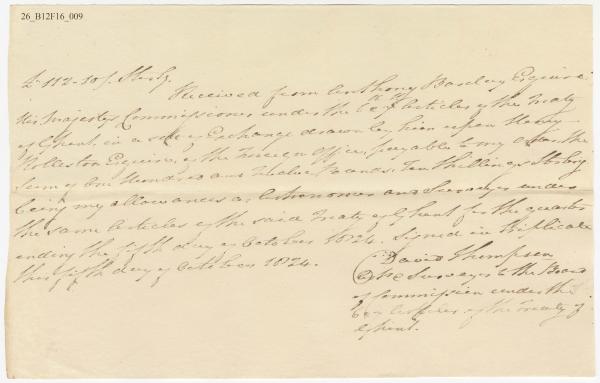 26_B12F16_009
£112-10/. Sterlg.
Received from Anthony Barclay Esquire
His Majesty's Commissioner under the 6 & 7 Articles of the Treaty
of Ghent, in a set of Exchange drawn by him upon Henry
Rolleston Esquire, of the Foreign Office, payable to my order the
sum of One Hundred and Twelve Pounds, Ten Shillings Sterling
being my allowance as Astronomer and Surveyor under
the same Articles of the said Treaty of Ghent for the quarter
ending the fifth day of October 1824. Signed in Triplicate
this fifth day of October 1824.
David Thompson
Surveyor to the Board
of Commission under the
Articles of the Treaty of
Ghent.